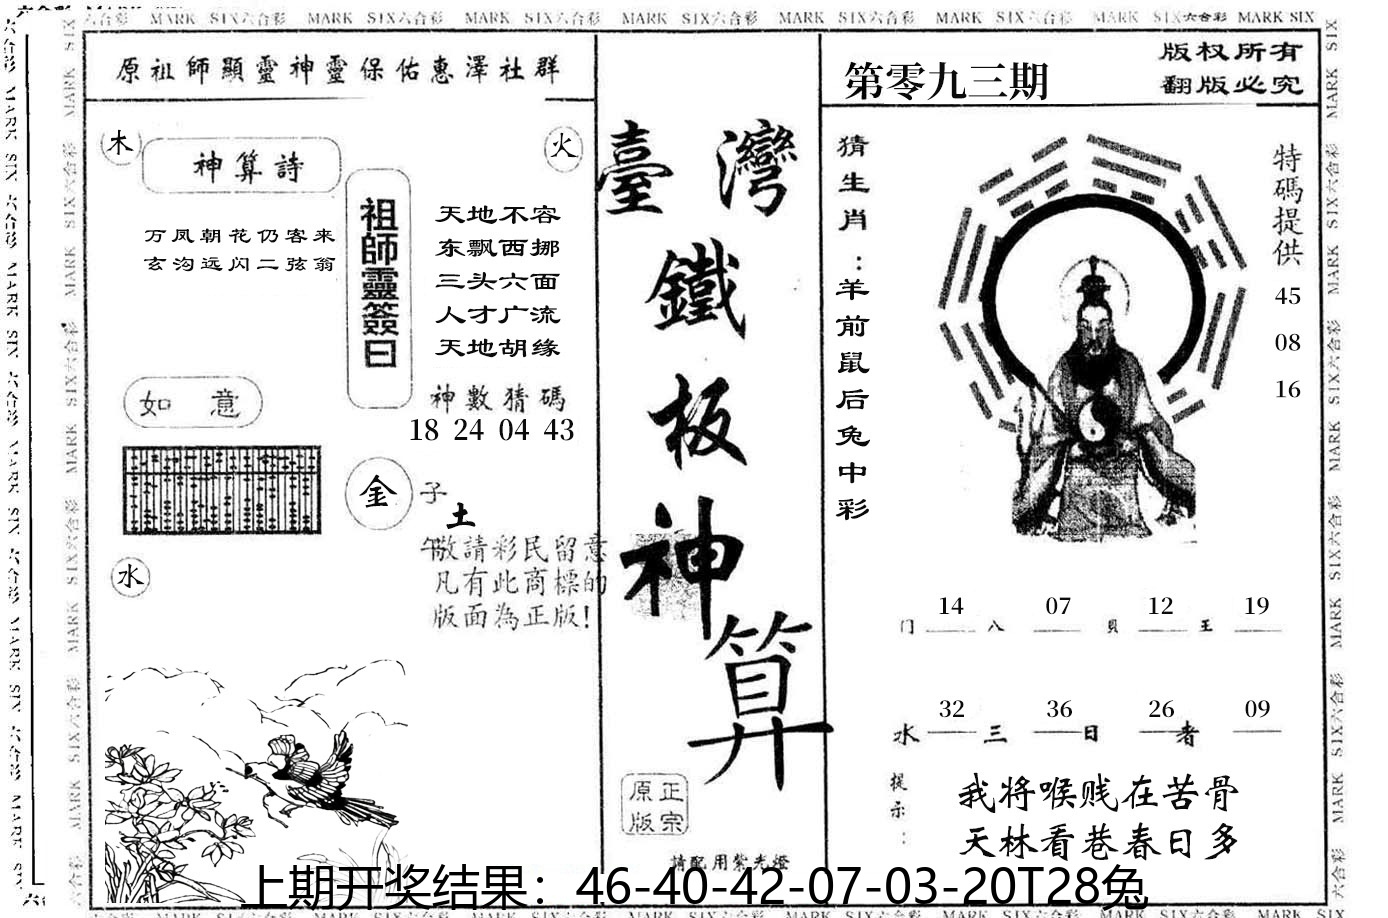 MARK SIX六合彩 MARK SIX六合彩 MARK SIX六合彩 MARK SIX六合彩 MARK SIX六合彩 MARK SIX六合彩 MARK SIX六合彩 MARK SIX
原祖師顯靈神靈保佑惠澤社群
木
火
神算詩
万凤朝花仍客来
玄沟远闪二弦翁
祖師靈簽曰
天地不容
东飘西挪
三头六面
人才广流
天地胡缘
神數猜碼
18 24 04 43
如意
金
子
土
午
敬請彩民留意
凡有此商標的
版面為正版!
水
臺灣
鐵板神算
正宗
原版
請配用紫光燈
第零九三期
版权所有
翻版必究
猜生肖:羊前鼠后兔中彩
特碼提供
45
08
16
14 07 12 19
门 八 貝 王
32 36 26 09
水 三 日 者
提示:
我将喉贱在苦骨
天林看巷春日多
上期开奖结果：46-40-42-07-03-20T28兔